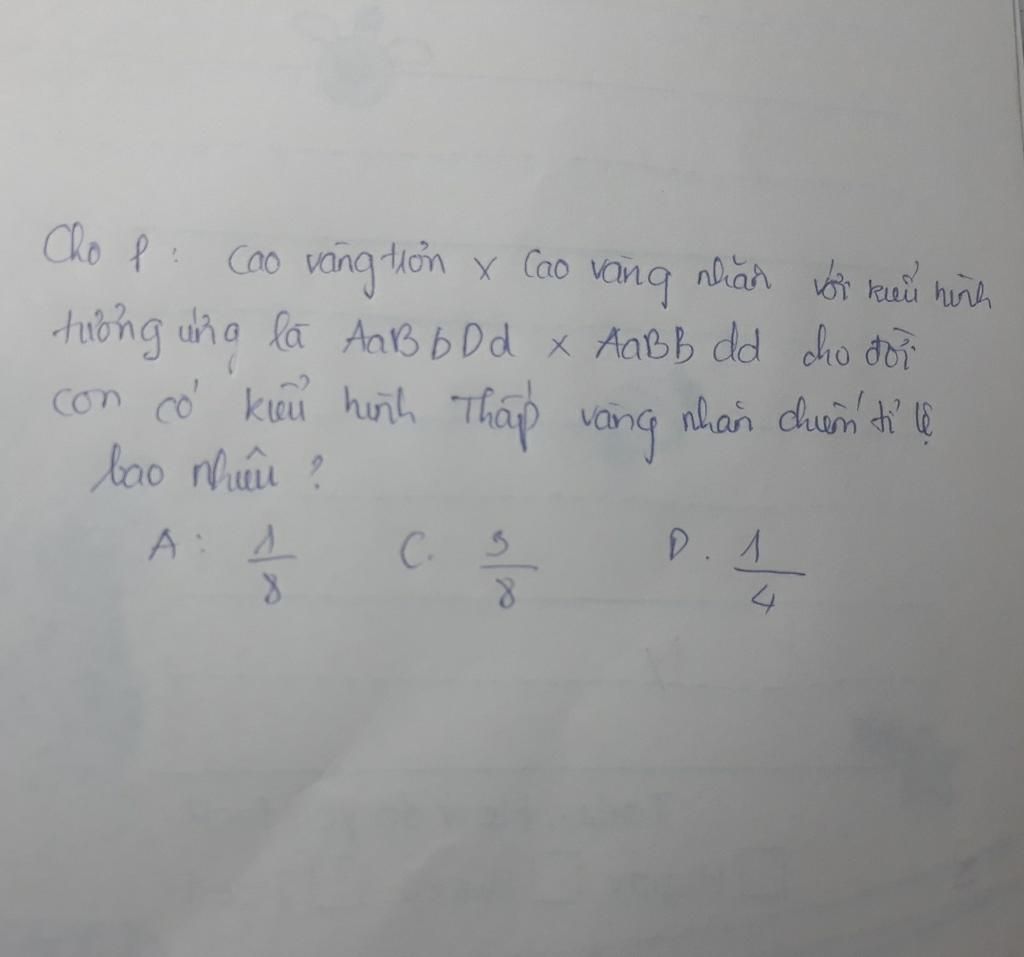 Cho P: Cao vàng trơn x Cao vàng nhăn với kiểu hình
tương ứng là AaBbDd x AaBB dd cho đời
con có kiểu hình Thấp vàng nhăn chiếm tỉ lệ
bao nhiêu?
A: 1/8 C. 3/8 D. 1/4